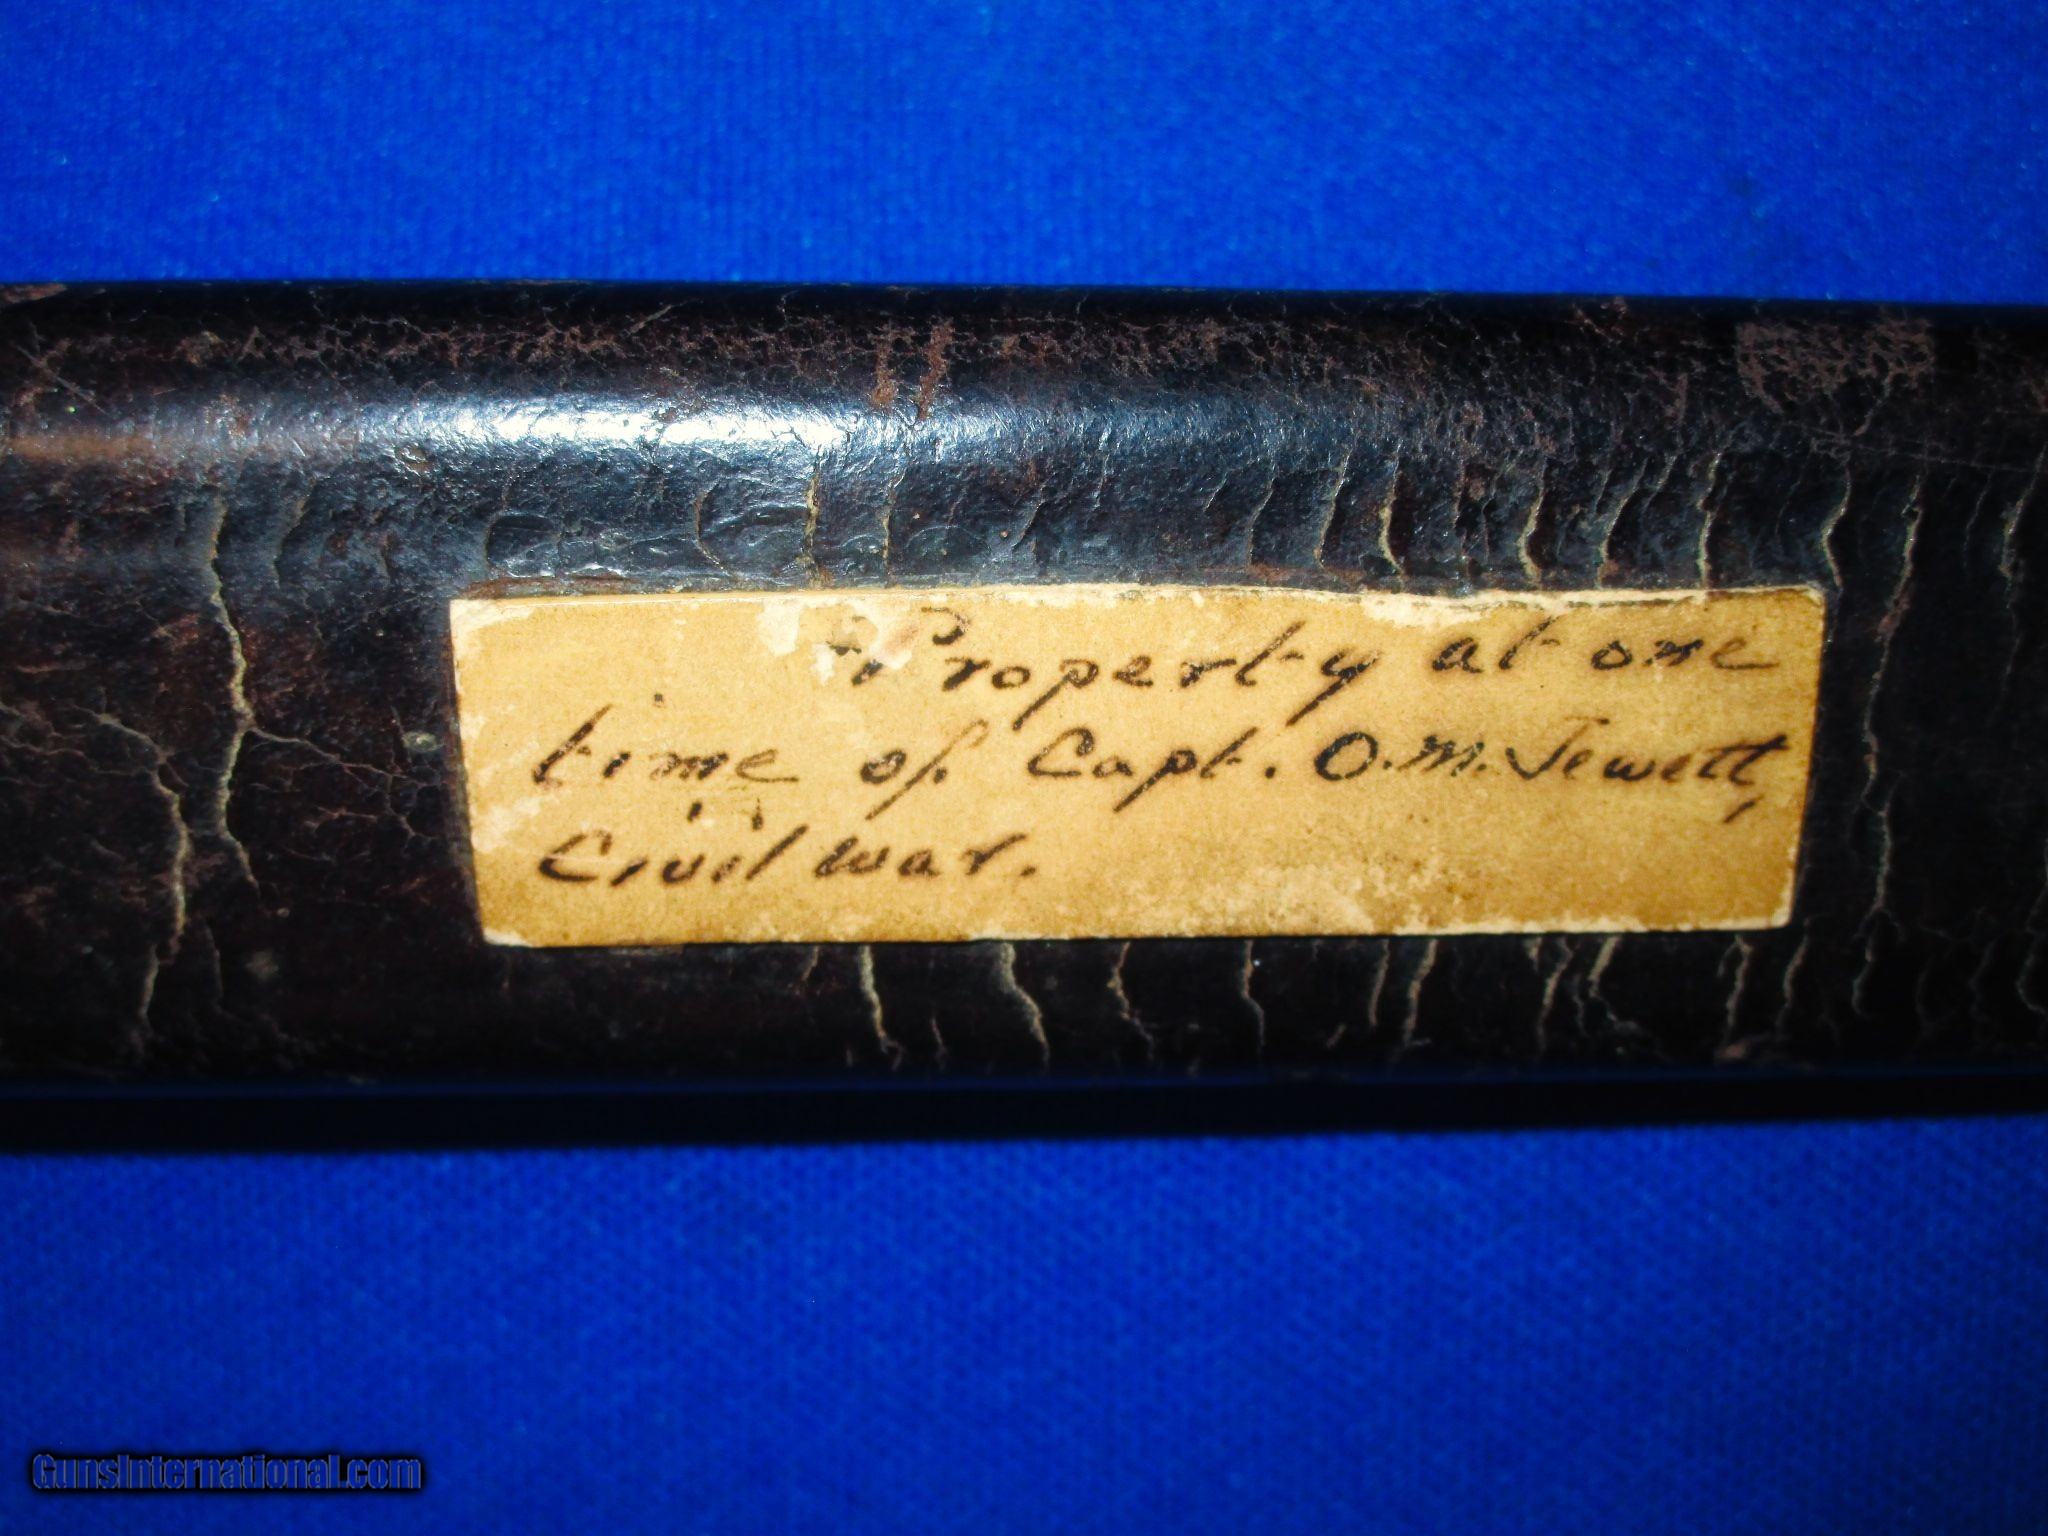 Property at one
time of Capt. O.M. Jewett,
Civil War.
GunsInternational.com